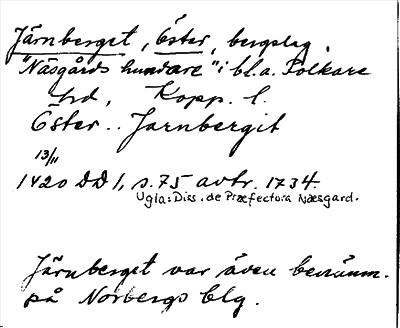 Järnberget, Öster, bergslag.
"Näsgårds hundare" i bl.a. Folkare
hd, Kopp. l.
Öster.. Jarnbergit
13/11
1420 DD 1, s. 75 avtr. 1734.
Ugla: Diss. de Præfectora Næsgard.
Järnberget var även benämn.
på Norbergs blg.